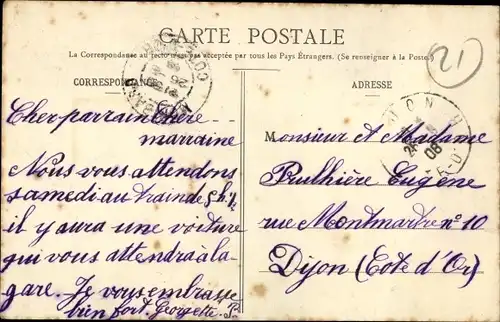 CARTE POSTALE
La Correspondance au recto n'est pas acceptée par tous les Pays Étrangers. (Se renseigner à la Poste.)
CORRESPONDANCE
ADRESSE
21
Cher parrain chère
marraine
Nous vous attendons
samedi au train de 5h. ½
il y aura une voiture
qui vous attendra à la
gare. Je vous embrasse
bien fort. Georgette.
Monsieur et Madame
Prulhière Eugène
rue Montmartre n° 10
Dijon (Cote d'Or)
DIJON
08